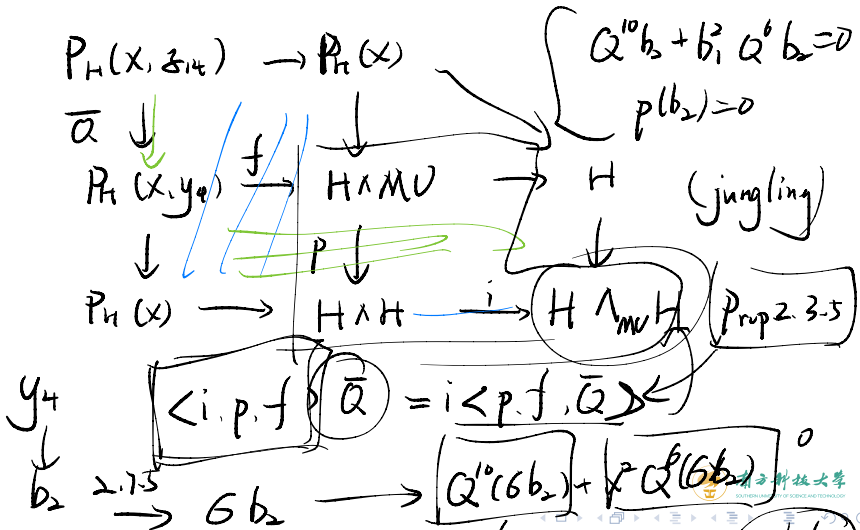 P_H(x, z_14) → P_H(x)
Q^10 b_2 + b_1^2 Q^6 b_2 = 0
p(b_2) = 0
Q̄
P_H(x, y_4) f → H∧MU → H
(jungling)
p
P_H(x) → H∧H i → H ∧_MU H
Prop 2.3.5
y_4
<i, p, f> Q̄ = i<p, f, Q̄>
b_2 2.7.5 → 6b_2 → Q^10(6b_2) + x^2 Q^6(6b_2) 0
南方科技大学
SOUTHERN UNIVERSITY OF SCIENCE AND TECHNOLOGY